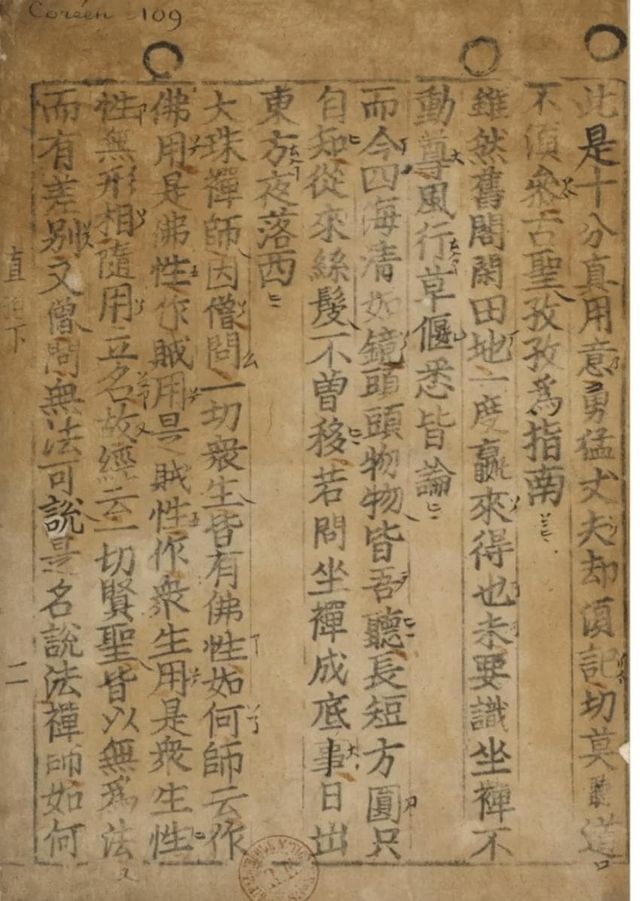 Coréen 109
此是十分真用意勇猛丈夫却湏記切莫聽道
不湏叅古聖孜孜爲指南
雖然舊閣閑田地一度贏來得也未要識坐禪不
動尊風行草偃悉皆論
而今四海清如鏡頭頭物物皆吾聽長短方圓只
自知從來絲髮不曾移若問坐禪成底事日出
東方夜落西
大珠禪師因僧問一切衆生皆有佛性如何師云作
佛用是佛性作賊用是賊性作衆生用是衆生性
性無形相隨用立名故經云一切賢聖皆以無爲法
而有差別又僧問無法可說是名說法禪師如何
直指下 二